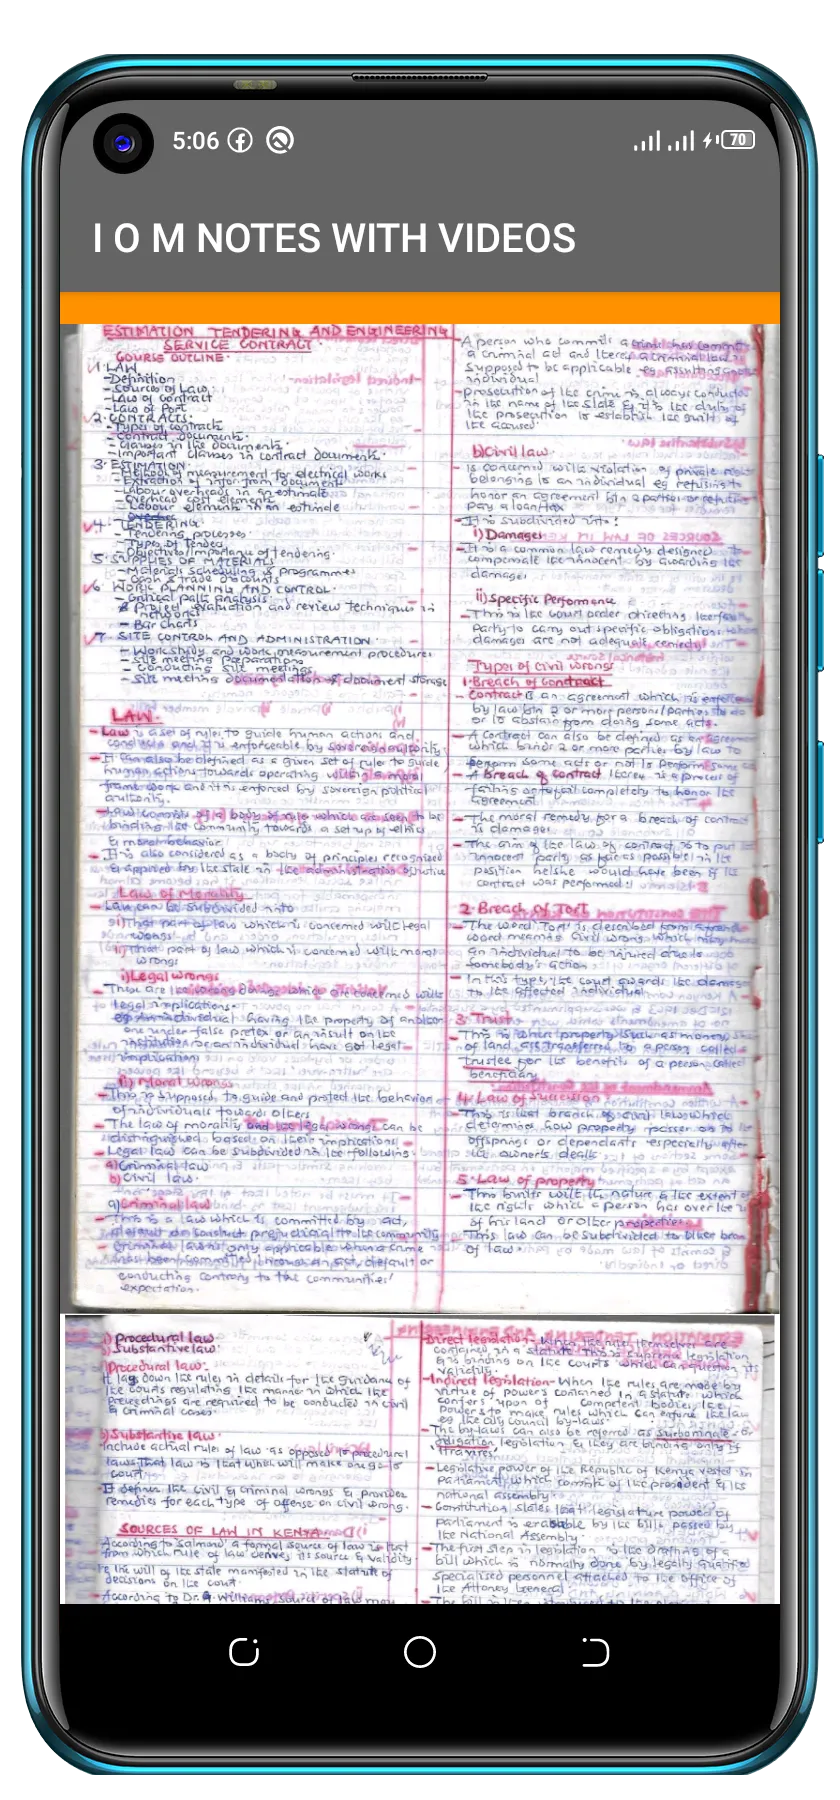 5:06
70
I O M NOTES WITH VIDEOS
ESTIMATION TENDERING AND ENGINEERING
SERVICE CONTRACT.
COURSE OUTLINE.
1. LAW
-Definition
-Sources of Law
-Law of Contract
-Law of Port
2. CONTRACTS.
-Types of contracts
-Contract documents.
-Clauses in the documents.
-Important clauses in contract documents.
3. ESTIMATION
-Method of measurement for electrical works
-Extraction of infor from document
-Labour overheads in an estimate
-Overhead cost elements
-Labour elements in an estimate
4. TENDERING
-Tendering processes
-Types of Tender
-Objectives/importance of tendering.
5. SUPPLIES OF MATERIALS
-Materials scheduling & programmes
-Cash & trade discounts
6. WORK PLANNING AND CONTROL.
-Critical path analysis
& Project evaluation and review techniques in
networks
-Bar charts
7. SITE CONTROL AND ADMINISTRATION
-Workstudy and work measurement procedures
-Site meeting preparations
-Conducting site meetings
-Site meeting documentation & document storage
LAW.
-Law is a set of rules to guide human actions and
conducts and it is enforceable by sovereign authority
-It can also be defined as a given set of rules to guide
human actions towards operating within a moral
frame work and it is enforced by sovereign political
authority.
-Law consists of a body of rule which are seen to be
binding the community towards a set up of ethics
& moral behavior
-It is also considered as a body of principles recognised
& applied by the state in the administration of justice
Law of Morality
-Law can be subdivided into
i) That part of law which is concerned with legal
wrongs
ii) That part of law which is concerned with moral
wrongs
i) Legal wrongs
-These are the wrong doings which are concerned with
legal implications.
eg an individual having the property of another
one under false pretex or an insult on the
institution or an individual have got legal
implication
ii) Moral wrongs
-This is supposed to guide and protect the behavior
of individuals towards others
-The law of morality and the legal wrongs can be
distinguished based on their implications
-Legal law can be subdivided in the following:
a) Criminal law
b) Civil law.
a) Criminal law
-This is a law which is committed by act,
default or conduct prejudicial to the community
-Criminal law is only applicable when a crime
has been committed through an act, default or
conducting contrary to the communities'
expectation.
-A person who commits a crime has commit
a criminal act and
supposed to be applicable eg assulting another
individual
-prosecution of the crime is always conducted
in the name of the state & it is the duty of
the prosecution to establish the guilt of
the accused.
b) Civil law.
-Is concerned with violation of private rights
belonging to an individual eg refusing to
honor an agreement btn 2 parties or refusing
pay a loan/tax
-It is subdivided into:
i) Damages
-It is a common law remedy designed to
compensate the innocent by awarding the
damages
ii) Specific Performance
-This is the court order directing the
party to carry out specific obligations
damages are not adequate remedy
Types of civil wrongs
1. Breach of contract
-Contract is an agreement which is enforce
by law btn 2 or more persons/parties to do
or to abstain from doing some acts.
-A contract can also be defined as an agreement
which binds 2 or more parties by law to
perform some acts or not to perform some
-A Breach of contract therey is a process of
failing or total completely to honor the
agreement
-The moral remedy for a breach of contract
is damages
-The aim of the law of contract is to put
innocent party as far as possible in the
position he/she would have been if the
contract was performed
2. Breach of Tort
-The word 'Tort' is described from a french
word meaning civil wrong which may cause
an individual to be injured due to
somebody's action
-In this type, the court awards the damages
to the affected individual
3. Trust
-This is when property such as money, shares
of land, are transferred to a person called
trustee for the benefits of a person called
beneficiary
4. Law of succession
-This is that branch of civil law which
determine how property passes on to the
offsprings or dependants especially after
the owner's death
5. Law of property
-This builts with the nature & the extent of
the rights which a person has over the use
of his land or other properties
-This law can be subdivided to other branch
of law
i) Procedural law
ii) Substantive law
i) Procedural law.
-It lays down the rules in details for the guidance of
the courts regulating the manner in which the
proceedings are required to be conducted in civil
& criminal cases
ii) Substantive law.
-Include actual rules of law as opposed to procedural
laws that law is that which will make one go to
court
-It defines the civil & criminal wrongs & provides
remedies for each type of offense on civil wrong.
SOURCES OF LAW IN KENYA
-According to Salmond a formal source of law is that
from which rule of law derives its source & validity
-Is the will of the state manifested in the statute of
decisions on the court.
-According to Dr. G. Williams source of law may
-Direct legislation- When the rule themselves are
contained in a statute. This is supreme legislation
& is binding on the courts which can question its
validity.
-Indirect legislation- When the rules are made by
virtue of powers contained in a statute which
confers upon of competent bodies, the
powers to make rules which can enforce the law
eg the city council by-laws
-The by-laws can also be referred as subordinate or
deligation legislation & they are binding only if
itravires
-Legislative power of the Republic of Kenya vested in
Parliament which consists of the president & the
national assembly
-Constitution states that legislature power of
parliament is by the bills passed by
the National Assembly.
-The first step in legislation is the drafting of a
bill which is normally done by legally qualified
specialised personnel attached to the office of
the Attorney General